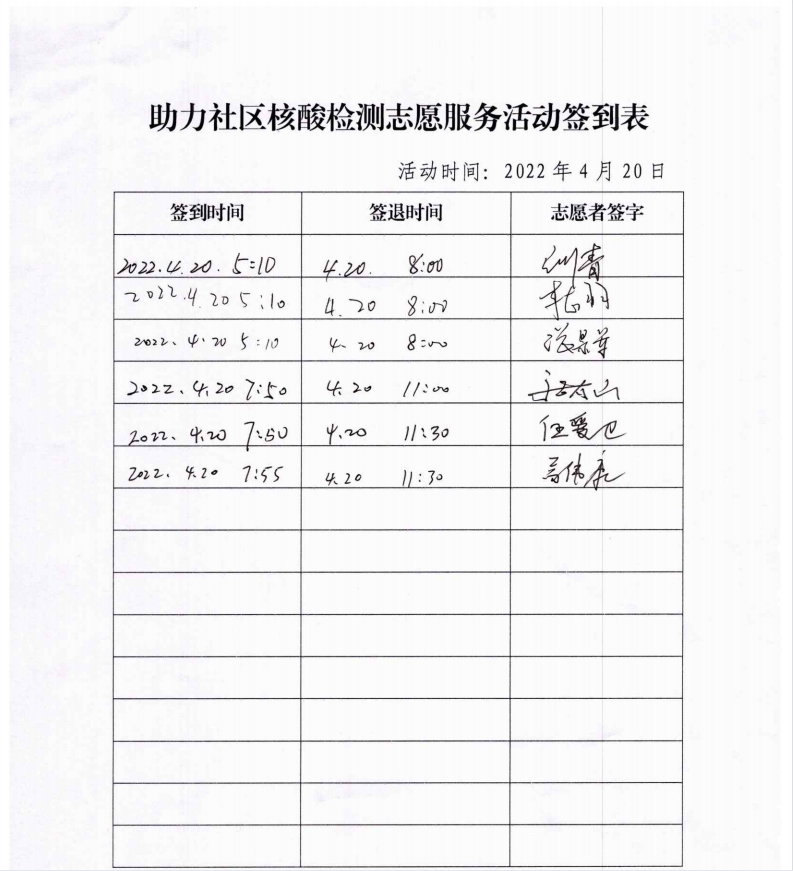 助力社区核酸检测志愿服务活动签到表
活动时间：2022年4月20日
签到时间 签退时间 志愿者签字
2022.4.20. 5:10 4.20. 8:00 刘青
2022.4.20 5:10 4.20 8:00
2022.4.20 5:10 4.20 8:00
2022.4.20 7:50 4.20 11:00
2022.4.20 7:50 4.20 11:30 任爱卫
2022.4.20 7:55 4.20 11:30